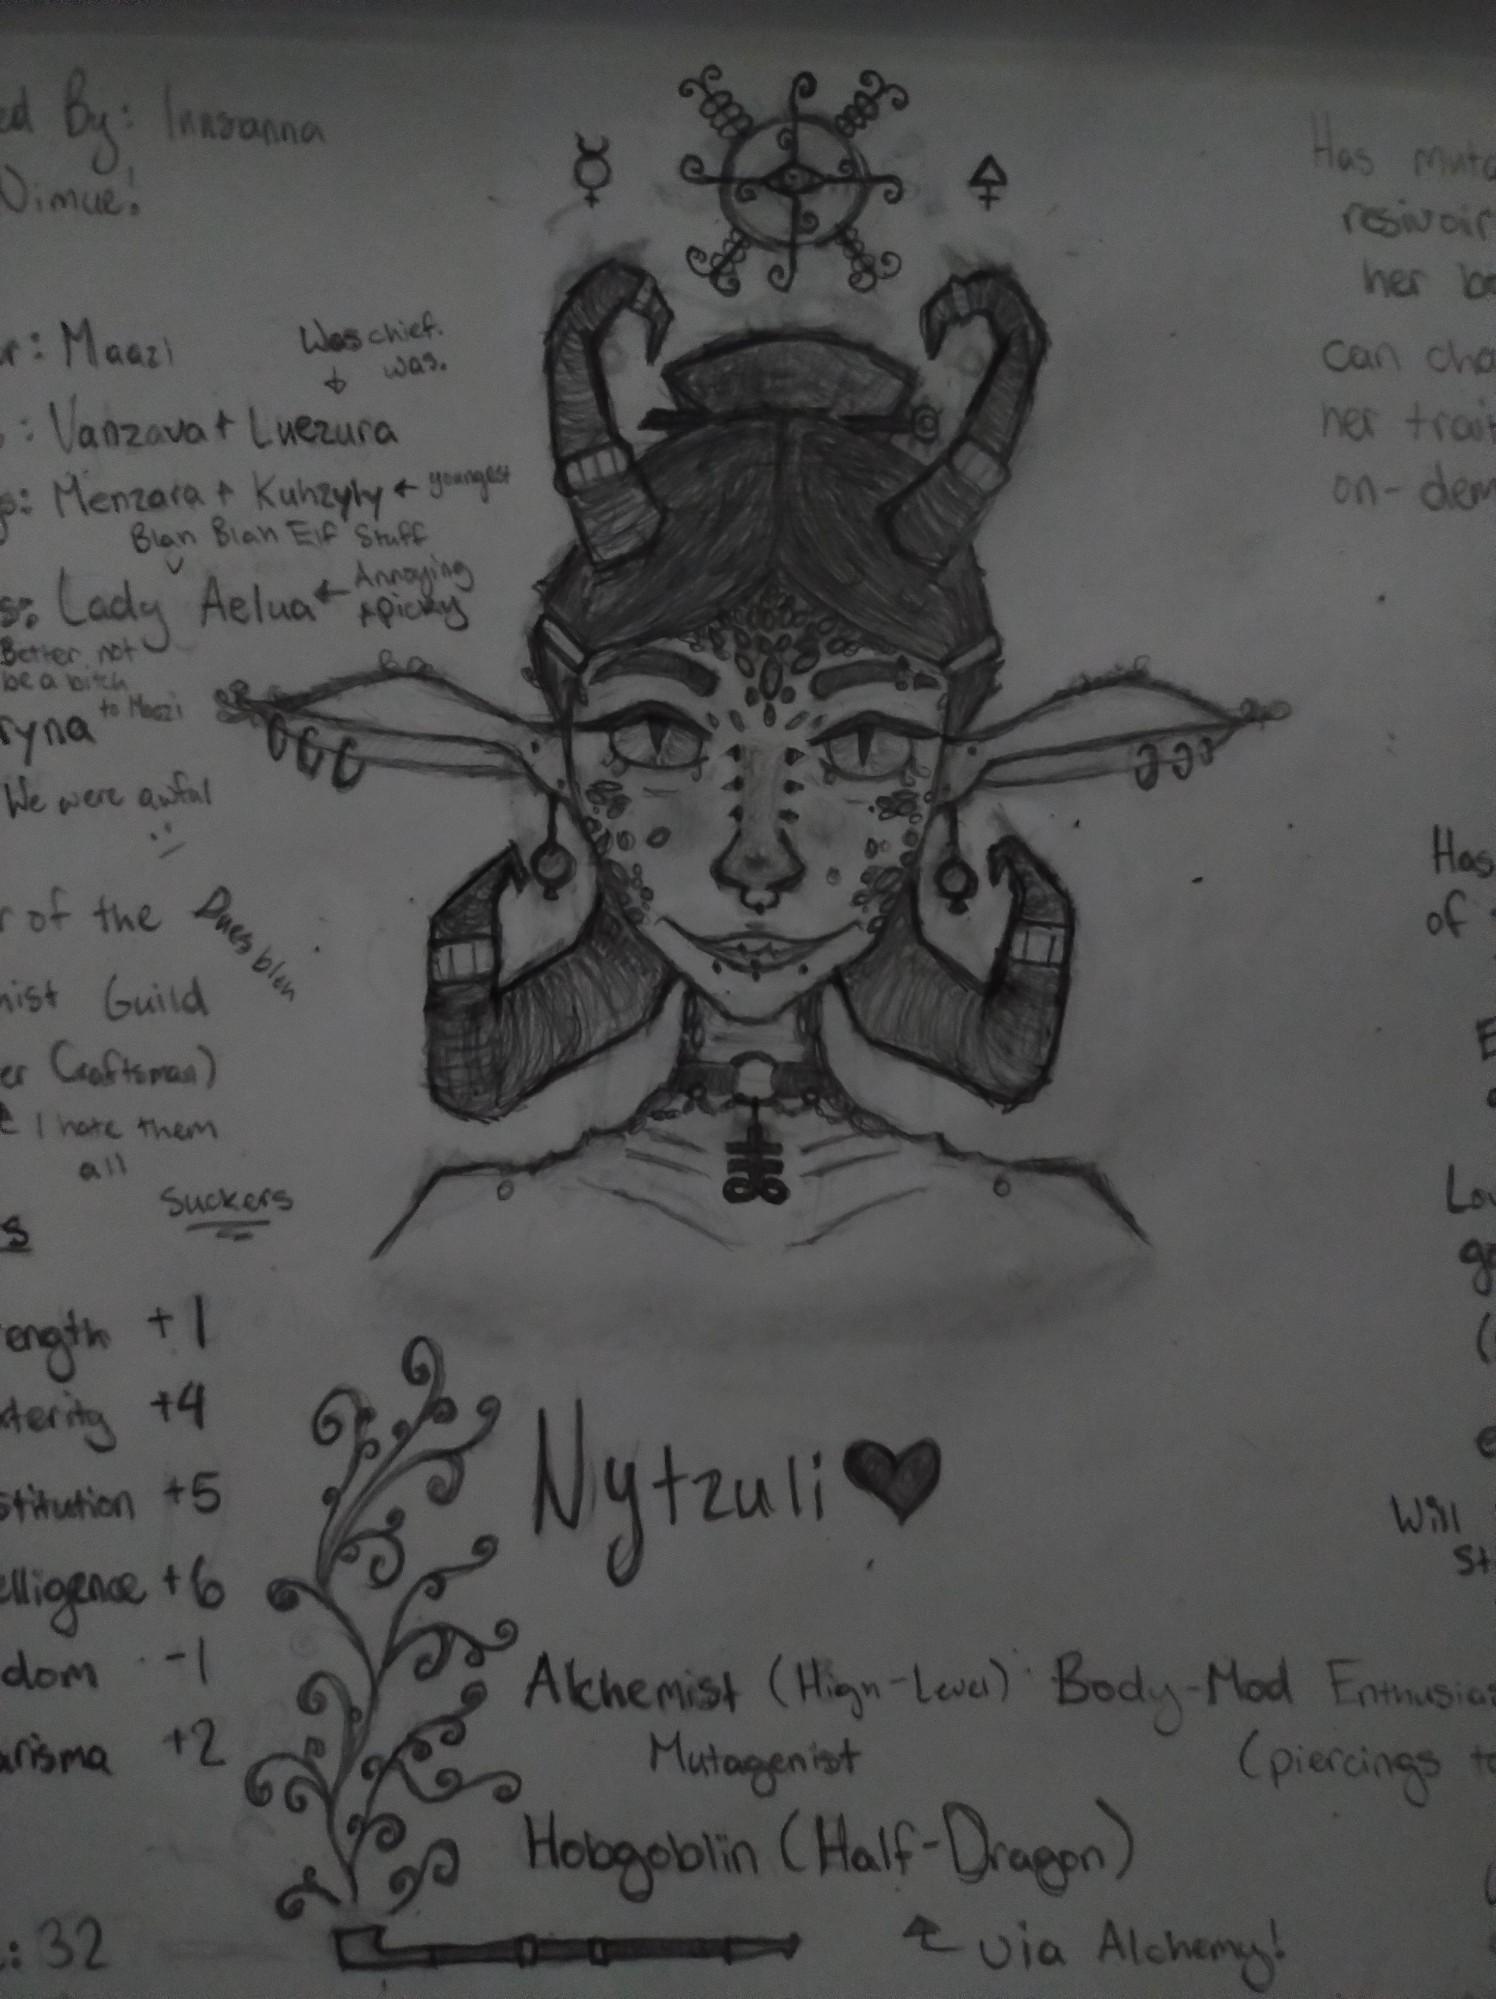 ed By: Innsanna
Nimue!
Has muta
resivoir
her bo
can cha
her trait
on-dem
r: Maazi
Was chief.
was.
: Vanzava + Luezura
gs: Menzara + Kuhzyly ← youngest
Blah Blah Elf Stuff
s: Lady Aelua ← Annoying
+ picky
Better not
be a bitch
to Maazi
ryna
We were awful
:-
r of the Duesblen
mist Guild
er Craftsman)
I hate them
all
Suckers
s
rength +1
xterity +4
stitution +5
elligence +6
dom -1
arisma +2
: 32
Has
of
E
Lov
go
(
e
Will
St
Nytzuli ♥
Alchemist (High-Level) Body-Mod Enthusias
Mutagenist (piercings to
Hobgoblin (Half-Dragon)
via Alchemy!